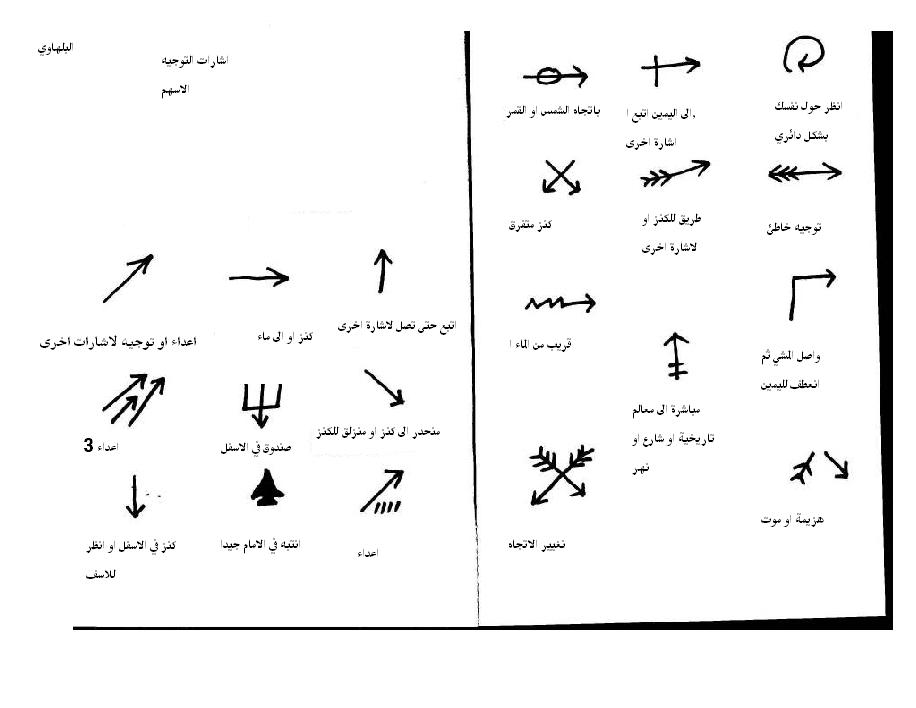 البلهاوي
اشارات التوجيه
الاسهم
انظر حول نفسك
بشكل دائري
الى اليمين اتبع ا.
اشارة اخرى
باتجاه الشمس او القمر
توجيه خاطئ
طريق للكنز او
لاشارة اخرى
كنز متفرق
واصل المشي ثم
انعطف لليمين
مباشرة الى معالم
تاريخية او شارع او
نهر
قريب من الماء ا
هزيمة او موت
تغيير الاتجاه
اتبع حتى تصل لاشارة اخرى
كنز او الى ماء
اعداء او توجيه لاشارات اخرى
منحدر الى كنز او منزلق للكنز
صندوق في الاسفل
3 اعداء
اعداء
انتبه في الامام جيدا
كنز في الاسفل او انظر
للاسف